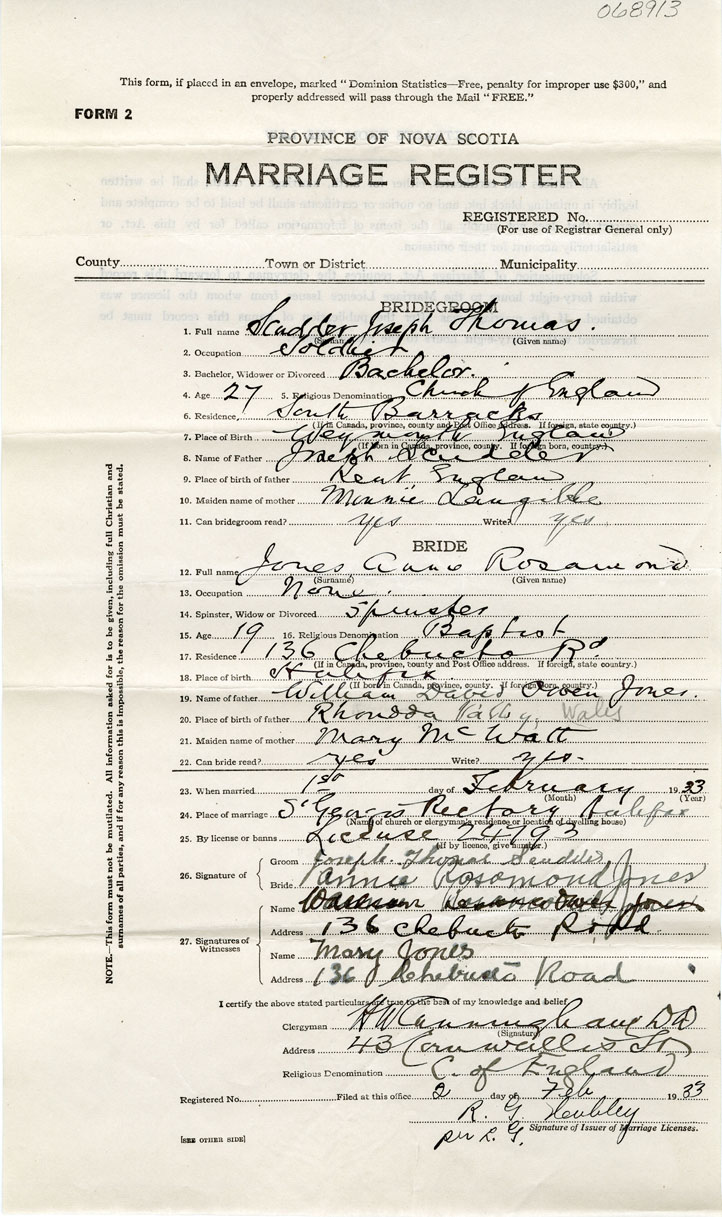 068913
This form, if placed in an envelope, marked "Dominion Statistics—Free, penalty for improper use $300," and
properly addressed will pass through the Mail "FREE."
FORM 2
PROVINCE OF NOVA SCOTIA
MARRIAGE REGISTER
REGISTERED No.
(For use of Registrar General only)
County Town or District Municipality
BRIDEGROOM
1. Full name Scudder Joseph Thomas.
(Surname) (Given name)
2. Occupation Soldier
3. Bachelor, Widower or Divorced Bachelor.
4. Age 27 5. Religious Denomination Church of England
6. Residence, South Barracks
(If in Canada, province, county and Post Office address. If foreign, state country.)
7. Place of Birth Weymouth England
(If born in Canada, province, county. If foreign born, country.)
8. Name of Father Joseph Scudder
9. Place of birth of father Kent England
10. Maiden name of mother Minnie Langille
11. Can bridegroom read? yes Write? yes.
BRIDE
12. Full name Jones Anna Rosamond
(Surname) (Given name)
13. Occupation None.
14. Spinster, Widow or Divorced Spinster
15. Age 19 16. Religious Denomination Baptist
17. Residence 136 Chebucto Rd
(If in Canada, province, county and Post Office address. If foreign, state country.)
18. Place of birth Halifax
(If born in Canada, province, county. If foreign born, country.)
19. Name of father William David Owen Jones.
20. Place of birth of father Rhondda Vally, Wales
21. Maiden name of mother Mary McWatt
22. Can bride read? yes Write? yes.
23. When married 1st day of February 1933
(Month) (Year)
24. Place of marriage St Georges Rectory Halifax
(Name of church or clergyman's residence or location of dwelling house)
25. By license or banns License 24793
(If by licence, give number.)
26. Signature of
Groom Joseph Thomas Scudder
Bride Annie Rosamond Jones
27. Signatures of Witnesses
Name Jones
Address 136 Chebucto Road
Name Mary Jones
Address 136 Chebucto Road
I certify the above stated particulars are true to the best of my knowledge and belief
Clergyman H W Cunningham DD
(Signature)
Address 43 Cornwallis St
Religious Denomination C. of England
Registered No. Filed at this office 2 day of Feb 1933
R. G. Heubley
Signature of Issuer of Marriage Licenses.
per L. G.
[SEE OTHER SIDE]
NOTE.—This form must not be mutilated. All information asked for is to be given, including full Christian and
surnames of all parties, and if for any reason this is impossible, the reason for the omission must be stated.